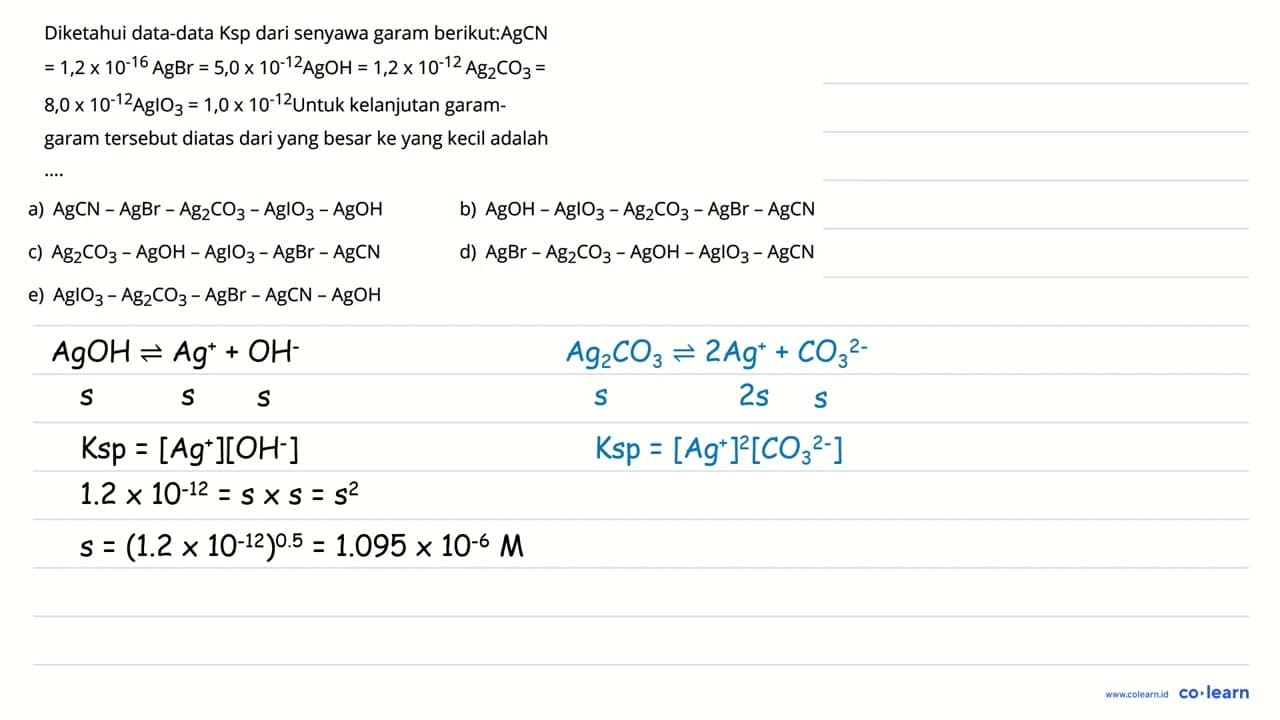 Diketahui data-data Ksp dari senyawa garam berikut:AgCN
= 1,2 x 10⁻¹⁶ AgBr = 5,0 x 10⁻¹²AgOH = 1,2 x 10⁻¹² Ag₂CO₃ =
8,0 x 10⁻¹²AgIO₃ = 1,0 x 10⁻¹²Untuk kelanjutan garam-
garam tersebut diatas dari yang besar ke yang kecil adalah
....
a) AgCN – AgBr – Ag₂CO₃ – AgIO₃ – AgOH b) AgOH – AgIO₃ – Ag₂CO₃ – AgBr – AgCN
c) Ag₂CO₃ – AgOH – AgIO₃ – AgBr – AgCN d) AgBr – Ag₂CO₃ – AgOH – AgIO₃ – AgCN
e) AgIO₃ – Ag₂CO₃ – AgBr – AgCN – AgOH
AgOH ⇌ Ag⁺ + OH⁻
s s s
Ksp = [Ag⁺][OH⁻]
1.2 x 10⁻¹² = s x s = s²
s = (1.2 x 10⁻¹²)⁰·⁵ = 1.095 x 10⁻⁶ M
Ag₂CO₃ ⇌ 2Ag⁺ + CO₃²⁻
s 2s s
Ksp = [Ag⁺]²[CO₃²⁻]
www.colearn.id co·learn